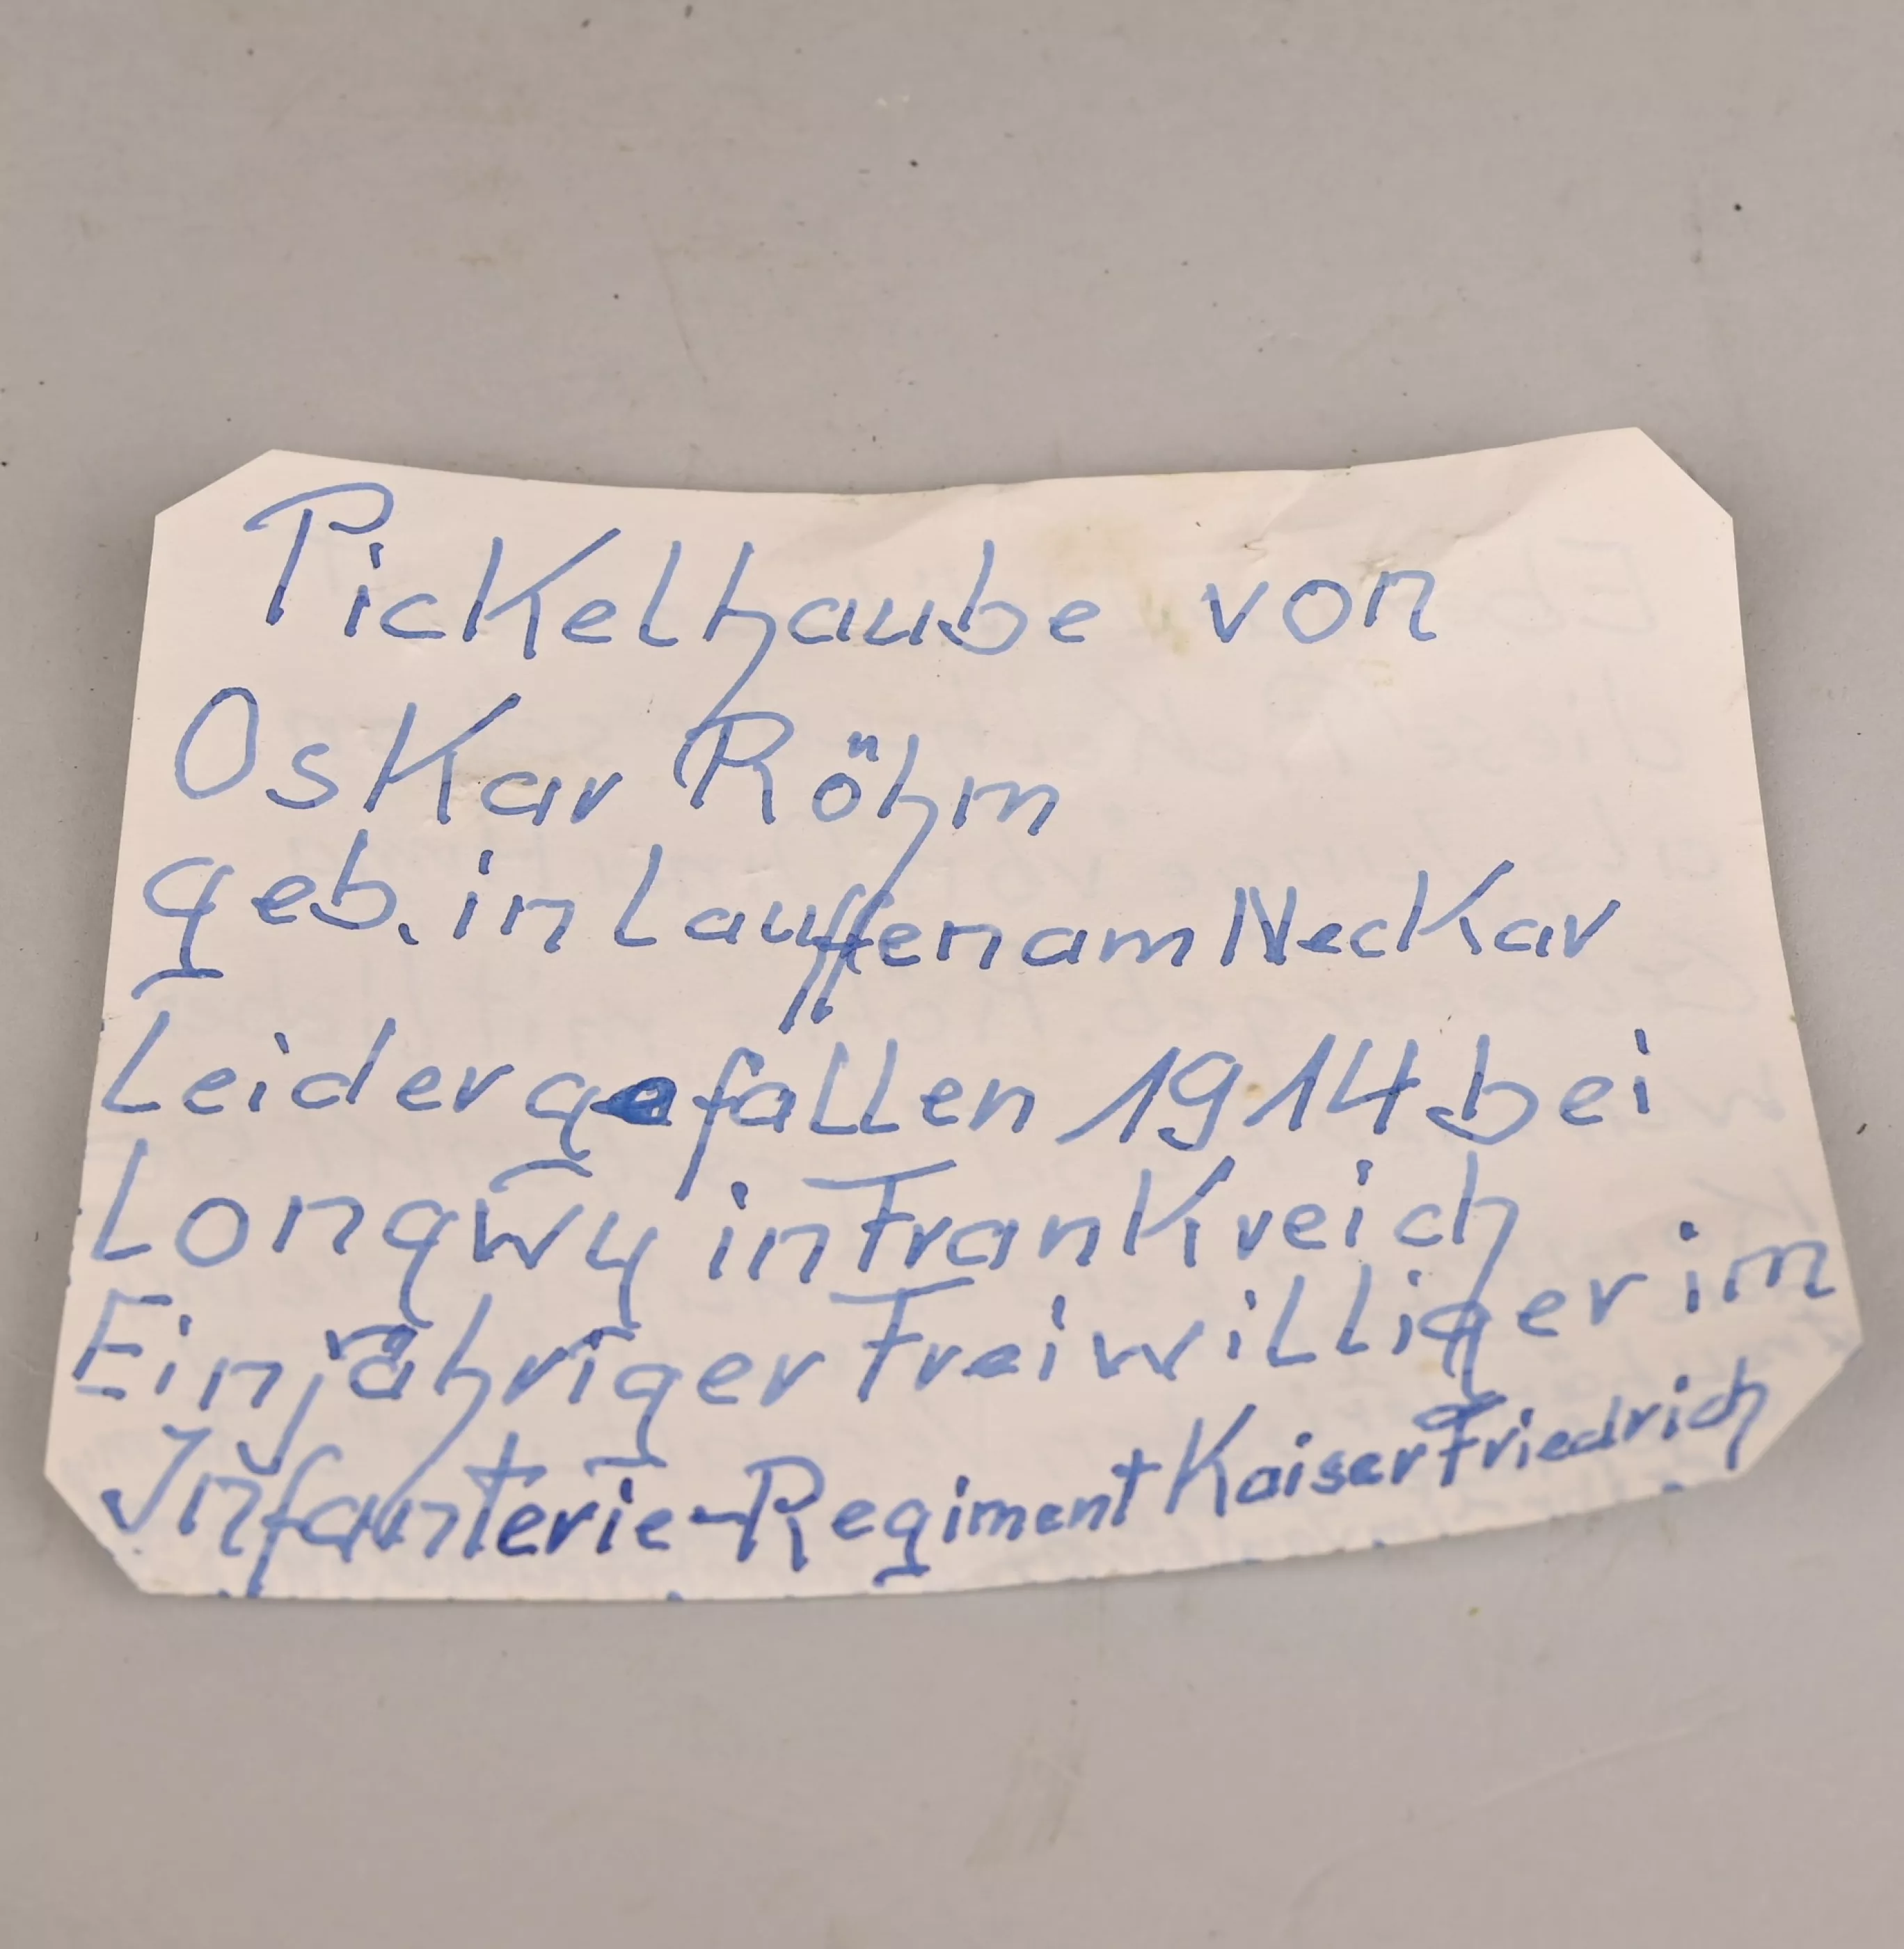 Pickelhaube von
Oskar Röhm
geb. in Lauffen am Neckar
Leider gefallen 1914 bei
Longwy in Frankreich
Einjähriger Freiwilliger im
Infanterie-Regiment Kaiser Friedrich